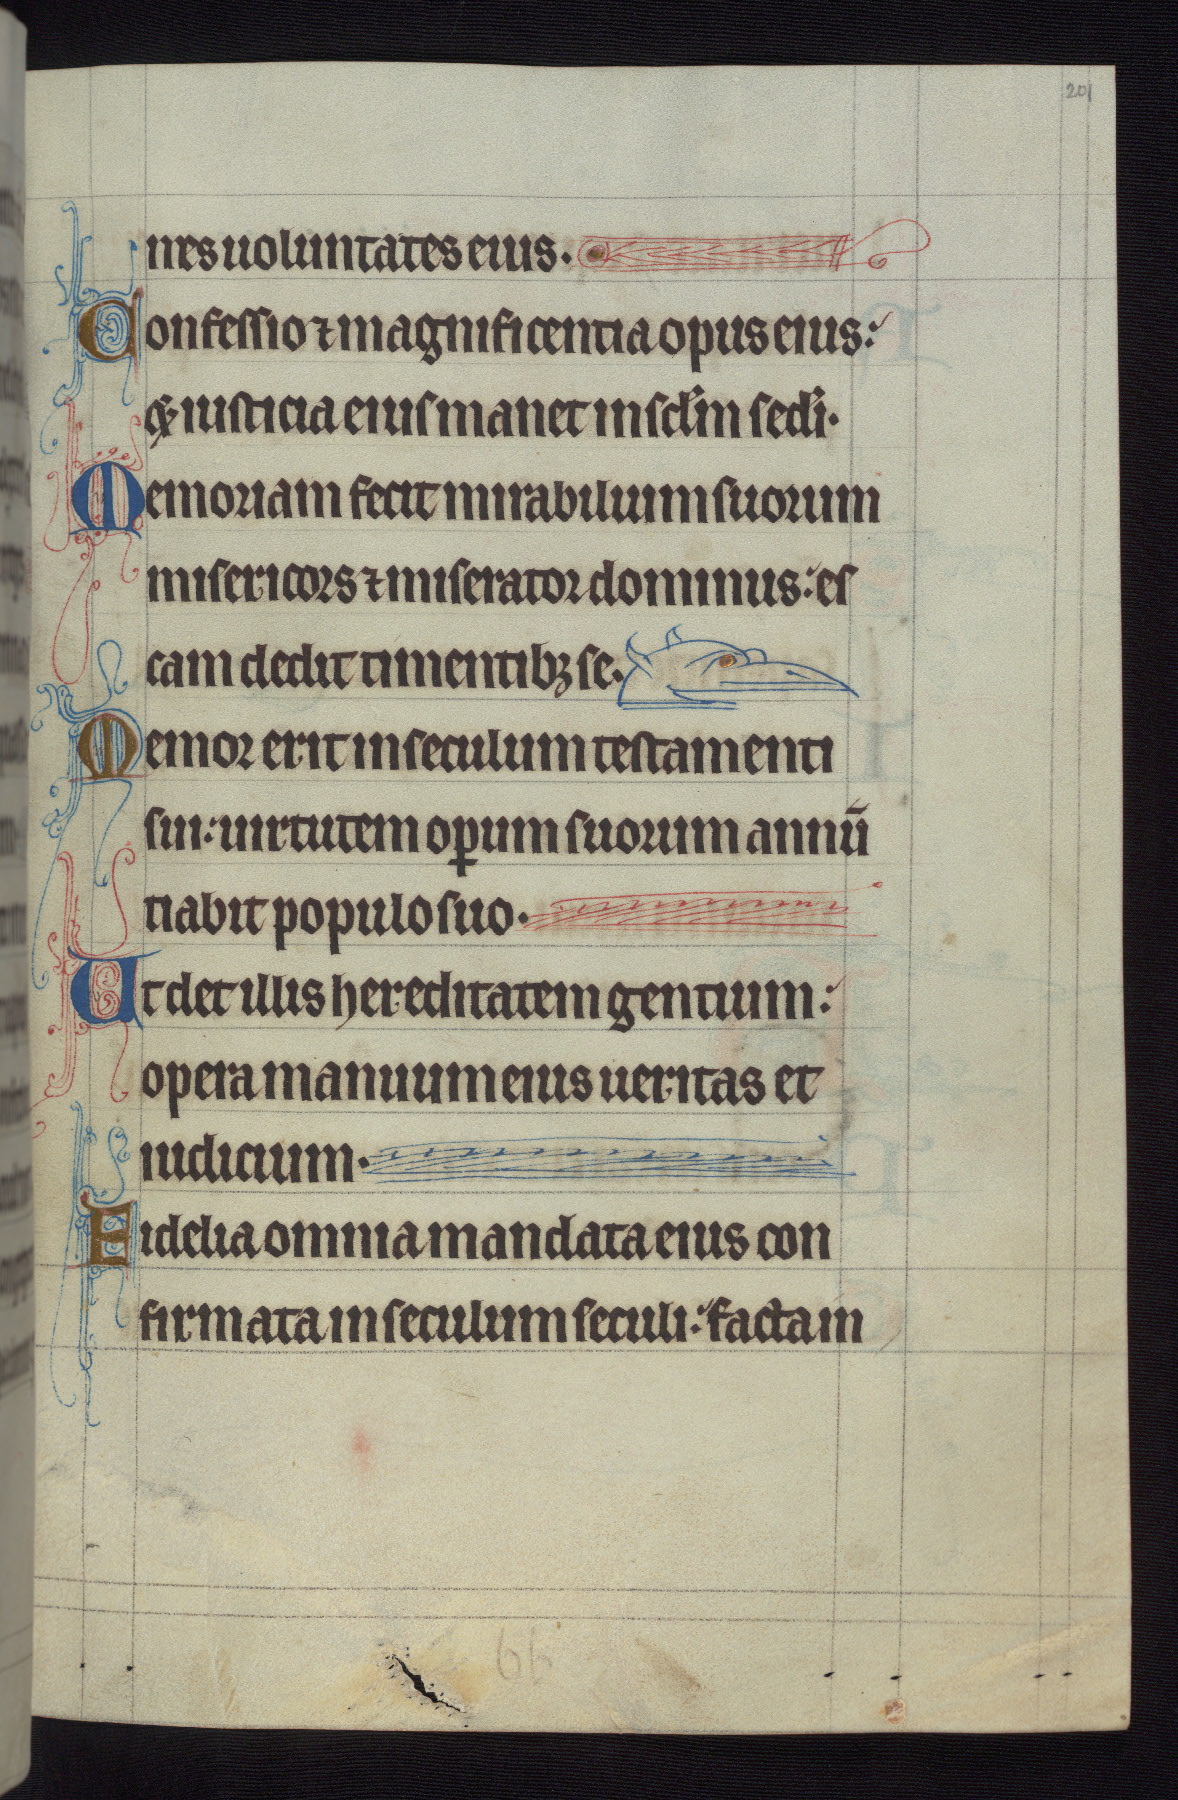 201
nes uoluntates eius.
Confessio ⁊ magnificentia opus eius:
⁊ iusticia eius manet in sclm̄ scli.
Memoriam fecit mirabilium suorum
misericors ⁊ miserator dominus: es
cam dedit timentibꝫ se.
Memor erit in seculum testamenti
sui: uirtutem oꝑum suorum annū
tiabit populo suo.
Ut det illis hereditatem gentium:
opera manuum eius ueritas et
iudicium.
Fidelia omnia mandata eius con
firmata in seculum seculi: facta in
66